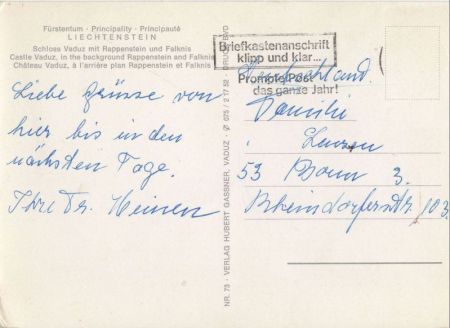 Fürstentum - Principality - Principauté
LIECHTENSTEIN
Schloss Vaduz mit Rappenstein und Falknis
Castle Vaduz, in the background Rappenstein and Falknis
Château Vaduz, à l'arrière plan Rappenstein et Falknis
Liebe Grüsse von
hier bis in den
nächsten Tage.
Ihre Fr. Heinen
NR. 73 - VERLAG HUBERT GASSNER, VADUZ - ✆ 075 / 2 17 52
Briefkastenanschrift
klipp und klar...
Prompte Post
das ganze Jahr!
Deutschland.
Familie
53 Bonn 3.
Rheindorferstr. 103.